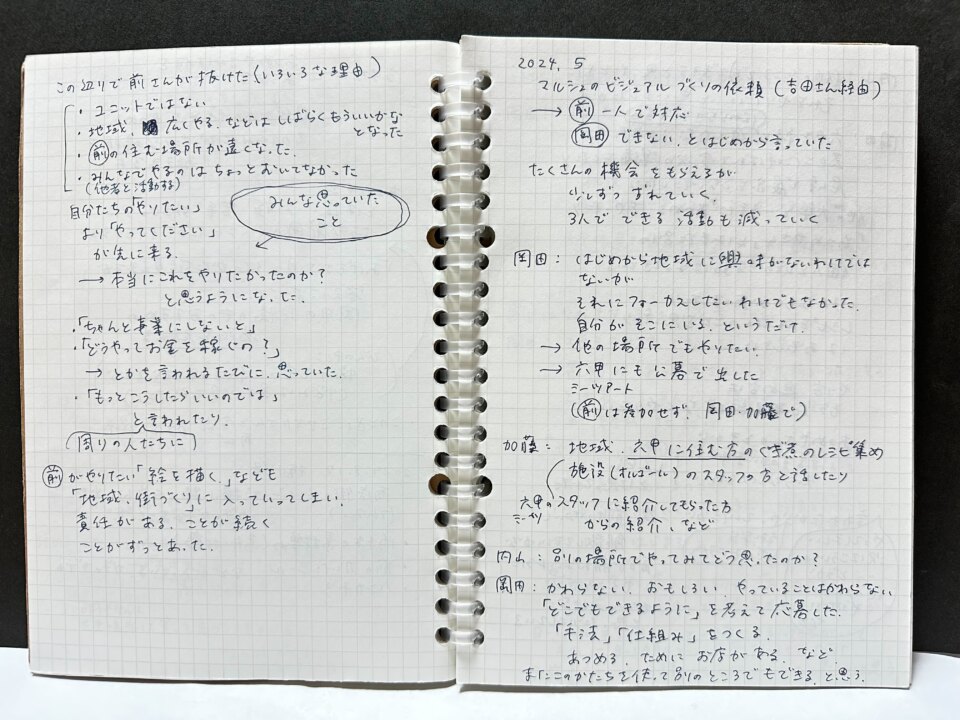 この辺りで前さんが抜けた(いろいろな理由)
・ユニットではない
・地域、広くやる、などはしばらくもういいかな
となった
・前の住む場所が遠くなった
・みんなでやるのはちょっとむいてなかった
(他者と活動する)
自分たちの「やりたい」
より「やってください」
が先に来る
みんな思っていた
こと
→本当にこれをやりたかったのか?
と思うようになった
・「ちゃんと事業にしないと」
・「どうやってお金を稼ぐの?」
→とかを言われるたびに、思っていた
・「もっとこうしたらいいのでは」
と言われたり
周りの人たちに
前がやりたい「絵を描く」なども
「地域、街づくり」に入っていってしまい
責任がある、ことが続く
ことがずっとあった
2024, 5
マルシェのビジュアルづくりの依頼(吉田さん経由)
→前 一人で対応
岡田 できない、とはじめから言っていた
たくさんの機会をもらえるが
少しずつずれていく
3人でできる活動も減っていく
岡田:はじめから地域に興味がないわけでは
ないが
それにフォーカスしたいわけでもなかった
自分がそこにいる、というだけ
→他の場所でもやりたい
→六甲にも公募で出した
ミーツアート
(前は参加せず、岡田・加藤で)
加藤:地域、六甲に住む方のくぎ煮のレシピ集め
施設(オルゴール)のスタッフの方と話したり
六甲のスタッフに紹介してもらった方
ミーツ
からの紹介、など
内山:別の場所でやってみてどう思ったのか?
岡田:かわらない、おもしろい、やっていることはかわらない
「どこでもできるように」を考えて応募した
「手法」「仕組み」をつくる
あつめる、ためにお店がある、など
またこのかたちを使って別のところでもできる、と思う